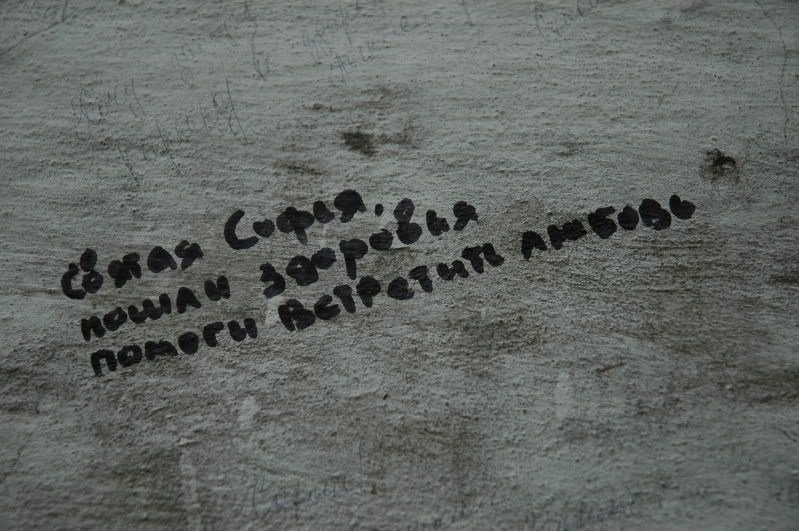 Святая София,
пошли здоровья
помоги встретить любовь